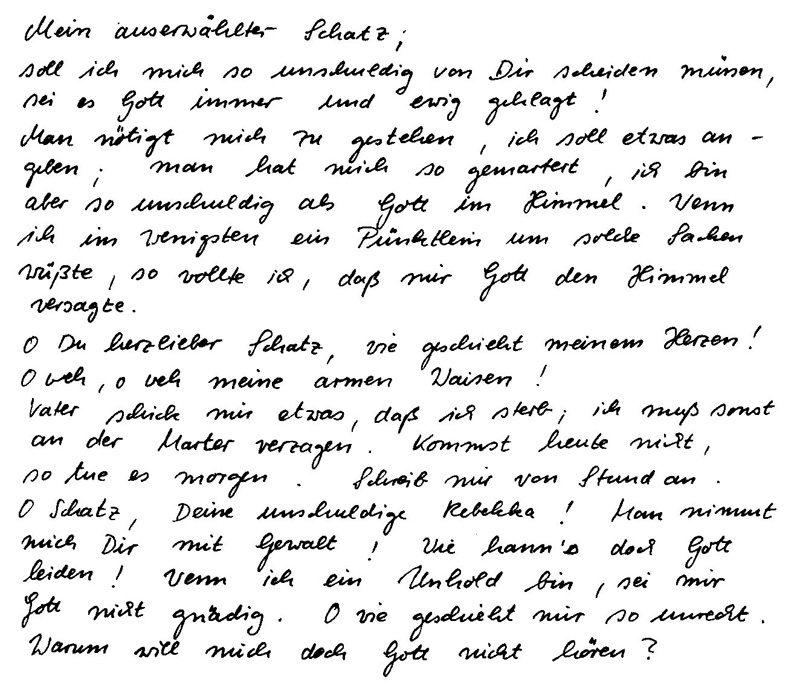 Mein auserwählter Schatz;
soll ich mich so unschuldig von Dir scheiden müssen,
sei es Gott immer und ewig geklagt!
Man nötigt mich zu gestehen, ich soll etwas an-
geben; man hat mich so gemartert, ich bin
aber so unschuldig als Gott im Himmel. Wenn
ich im wenigsten ein Pünktlein um solche Sachen
wüßte, so wollte ich, daß mir Gott den Himmel
versagte.
O Du herzlieber Schatz, wie geschieht meinem Herzen!
O weh, o weh meine armen Waisen!
Vater schick mir etwas, daß ich sterb; ich muß sonst
an der Marter verzagen. Kommst heute nicht,
so tue es morgen. Schreib mir von Stund an.
O Schatz, Deine unschuldige Rebekka! Man nimmt
mich Dir mit Gewalt! Wie kann's doch Gott
leiden! Wenn ich ein Unhold bin, sei mir
Gott nicht gnädig. O wie geschieht mir so unrecht.
Warum will mich doch Gott nicht hören?